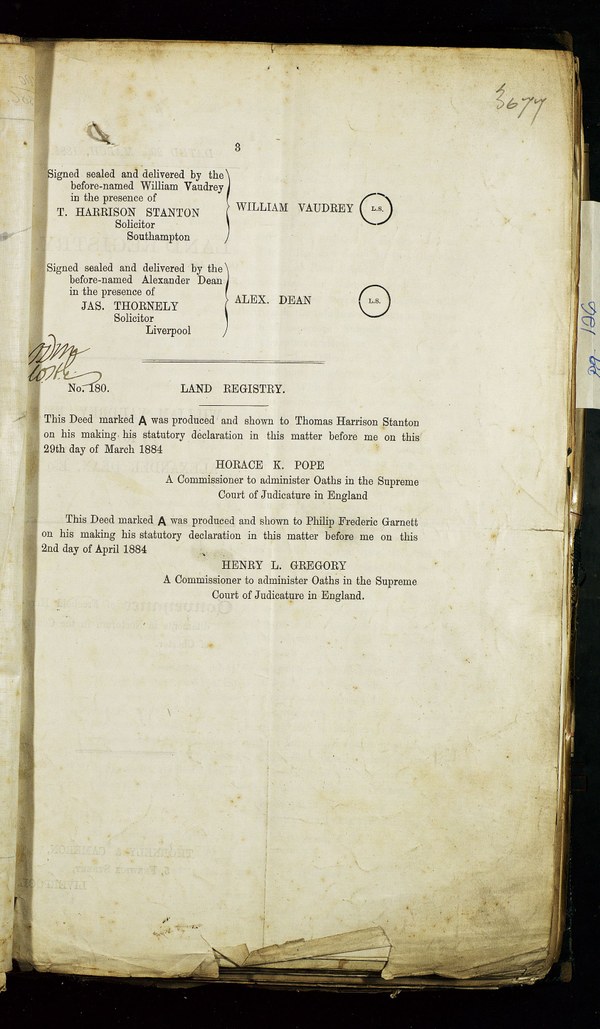 3677
3
Signed sealed and delivered by the
before-named William Vaudrey
in the presence of
T. HARRISON STANTON
Solicitor
Southampton
WILLIAM VAUDREY
L.S.
Signed sealed and delivered by the
before-named Alexander Dean
in the presence of
JAS. THORNELY
Solicitor
Liverpool
ALEX. DEAN
L.S.
No. 180.
LAND REGISTRY.
This Deed marked A was produced and shown to Thomas Harrison Stanton
on his making his statutory declaration in this matter before me on this
29th day of March 1884
HORACE K. POPE
A Commissioner to administer Oaths in the Supreme
Court of Judicature in England
This Deed marked A was produced and shown to Philip Frederic Garnett
on his making his statutory declaration in this matter before me on this
2nd day of April 1884
HENRY L. GREGORY
A Commissioner to administer Oaths in the Supreme
Court of Judicature in England.